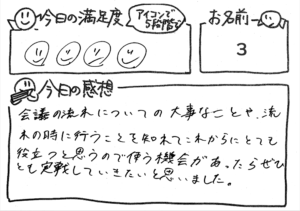 今日の満足度
アイコンで
5段階で
お名前
3
今日の感想
会議の流れについての大事なことや、流
れの時に行うことを知れてこれからにとても
役立つと思うので使う機会があったらぜひ
とも実戦していきたいと思いました。